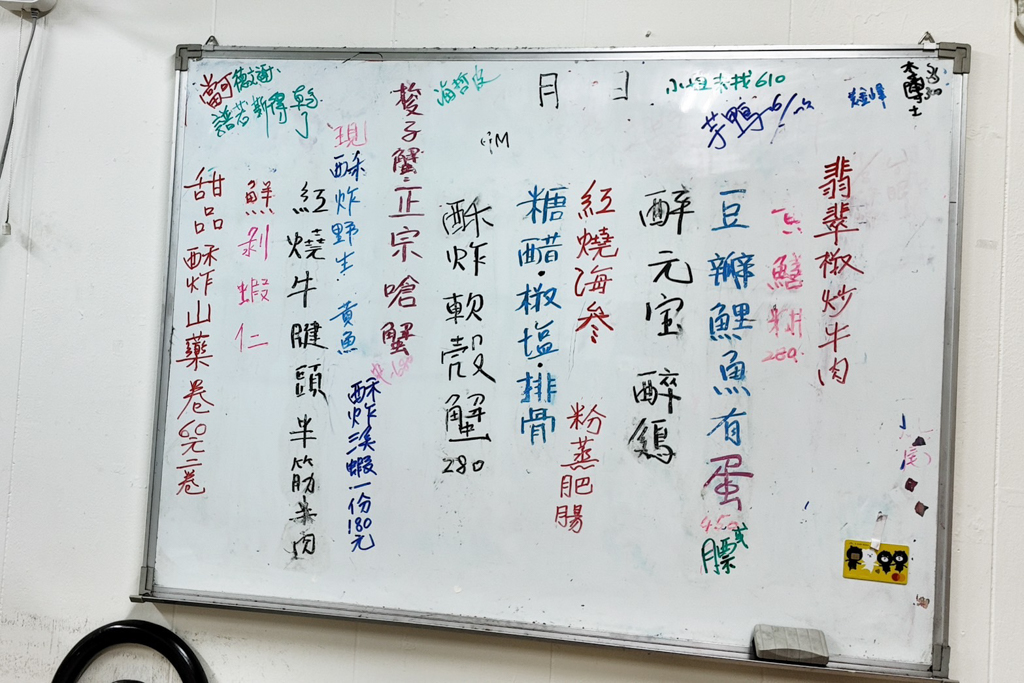 月 日
芋鴨
翡翠椒炒牛肉
鱔
280.
豆瓣鯉魚有蛋
450或
膘
醉元宝 醉鷄
紅燒海參
粉蒸肥腸
糖醋·椒塩·排骨
酥炸軟殼蟹
280
梭子蟹正宗嗆蟹
現
酥炸野生 黄魚
酥炸溪蝦一份180元
紅燒牛腱頭半筋半肉
鮮剥蝦仁
甜品酥炸山藥卷60元一卷